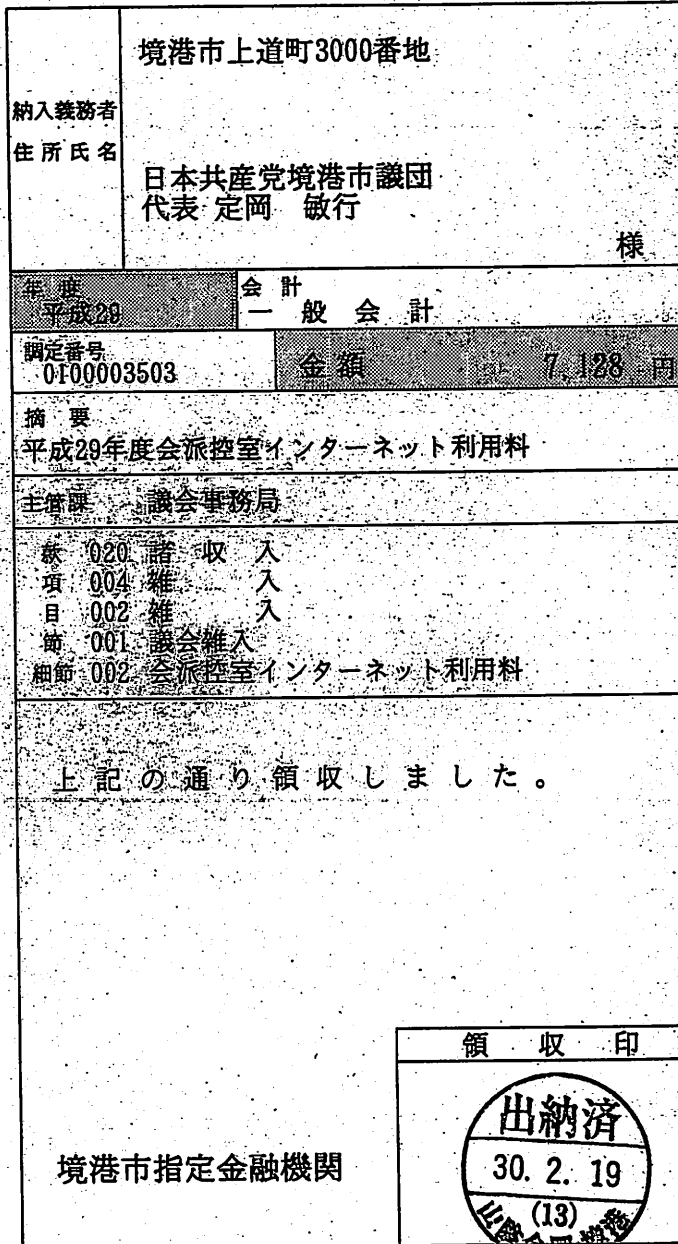 境港市上道町3000番地
納入義務者
住所氏名
日本共産党境港市議団
代表 定岡 敏行
様
年度
平成29
会計
一般会計
調定番号
0100003503
金額 7,128 円
摘要
平成29年度会派控室インターネット利用料
主管課 議会事務局
款 020 諸収入
項 004 雑入
目 002 雑入
節 001 議会雑入
細節 002 会派控室インターネット利用料
上記の通り領収しました。
領収印
出納済
30. 2. 19
(13)
境港市指定金融機関